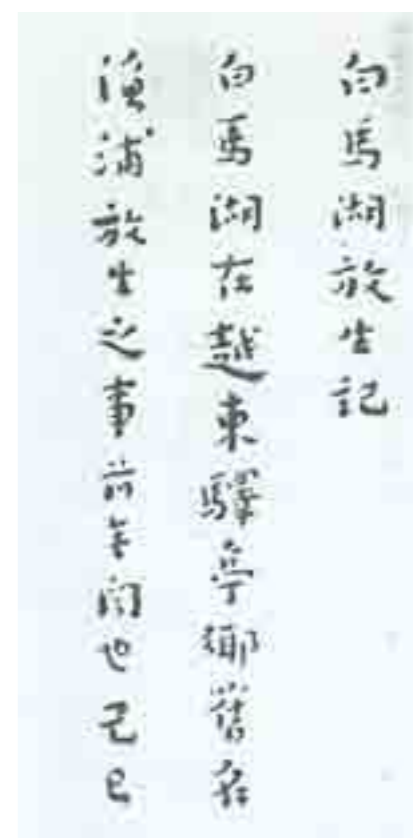 白馬湖放生記
白馬湖在越東驛亭鄉舊名
漁浦放生之事前年間也己巳